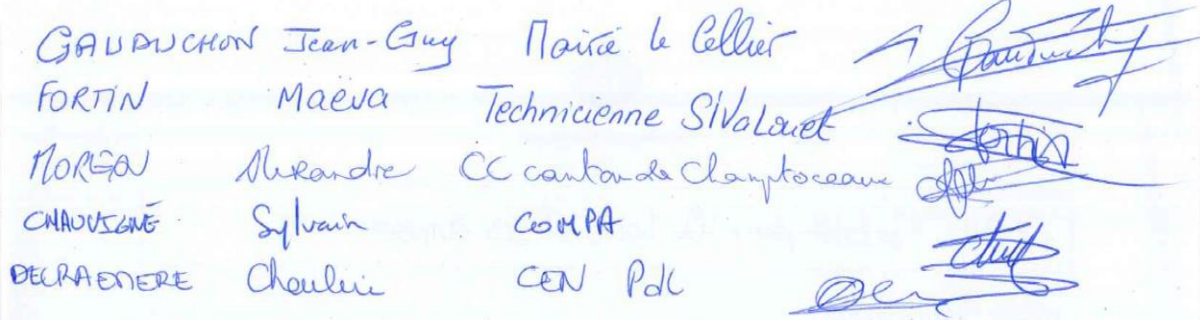 GAUDUCHON Jean-Guy Mairie le Cellier
FORTIN Maëva Technicienne SIVaLouet
MOREAU Alexandre CC canton de Champtoceaux
CHAUVIGNÉ Sylvain COMPA
DECRAEMERE CEN PdL